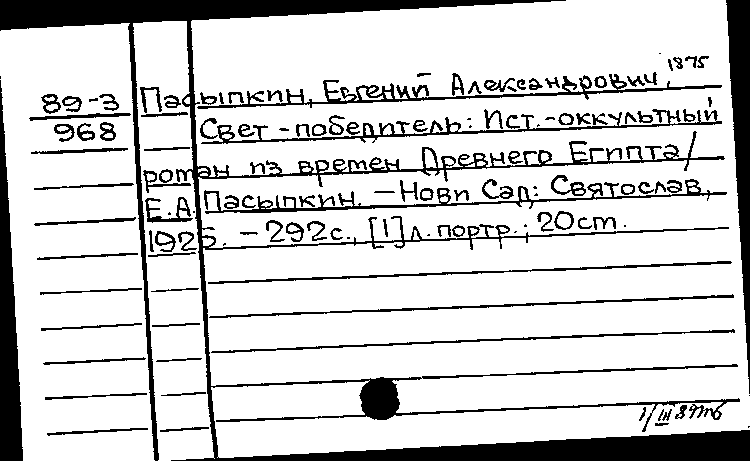 89-3 Пасыпкин, Евгений Александрович, 1875
968 Свет-победитель: Ист.-оккультный
роман из времен Древнего Египта/
Е.А. Пасыпкин. – Нови Сад: Святослав,
1925. – 292с., [1] л. портр.; 20см.
1/III 89